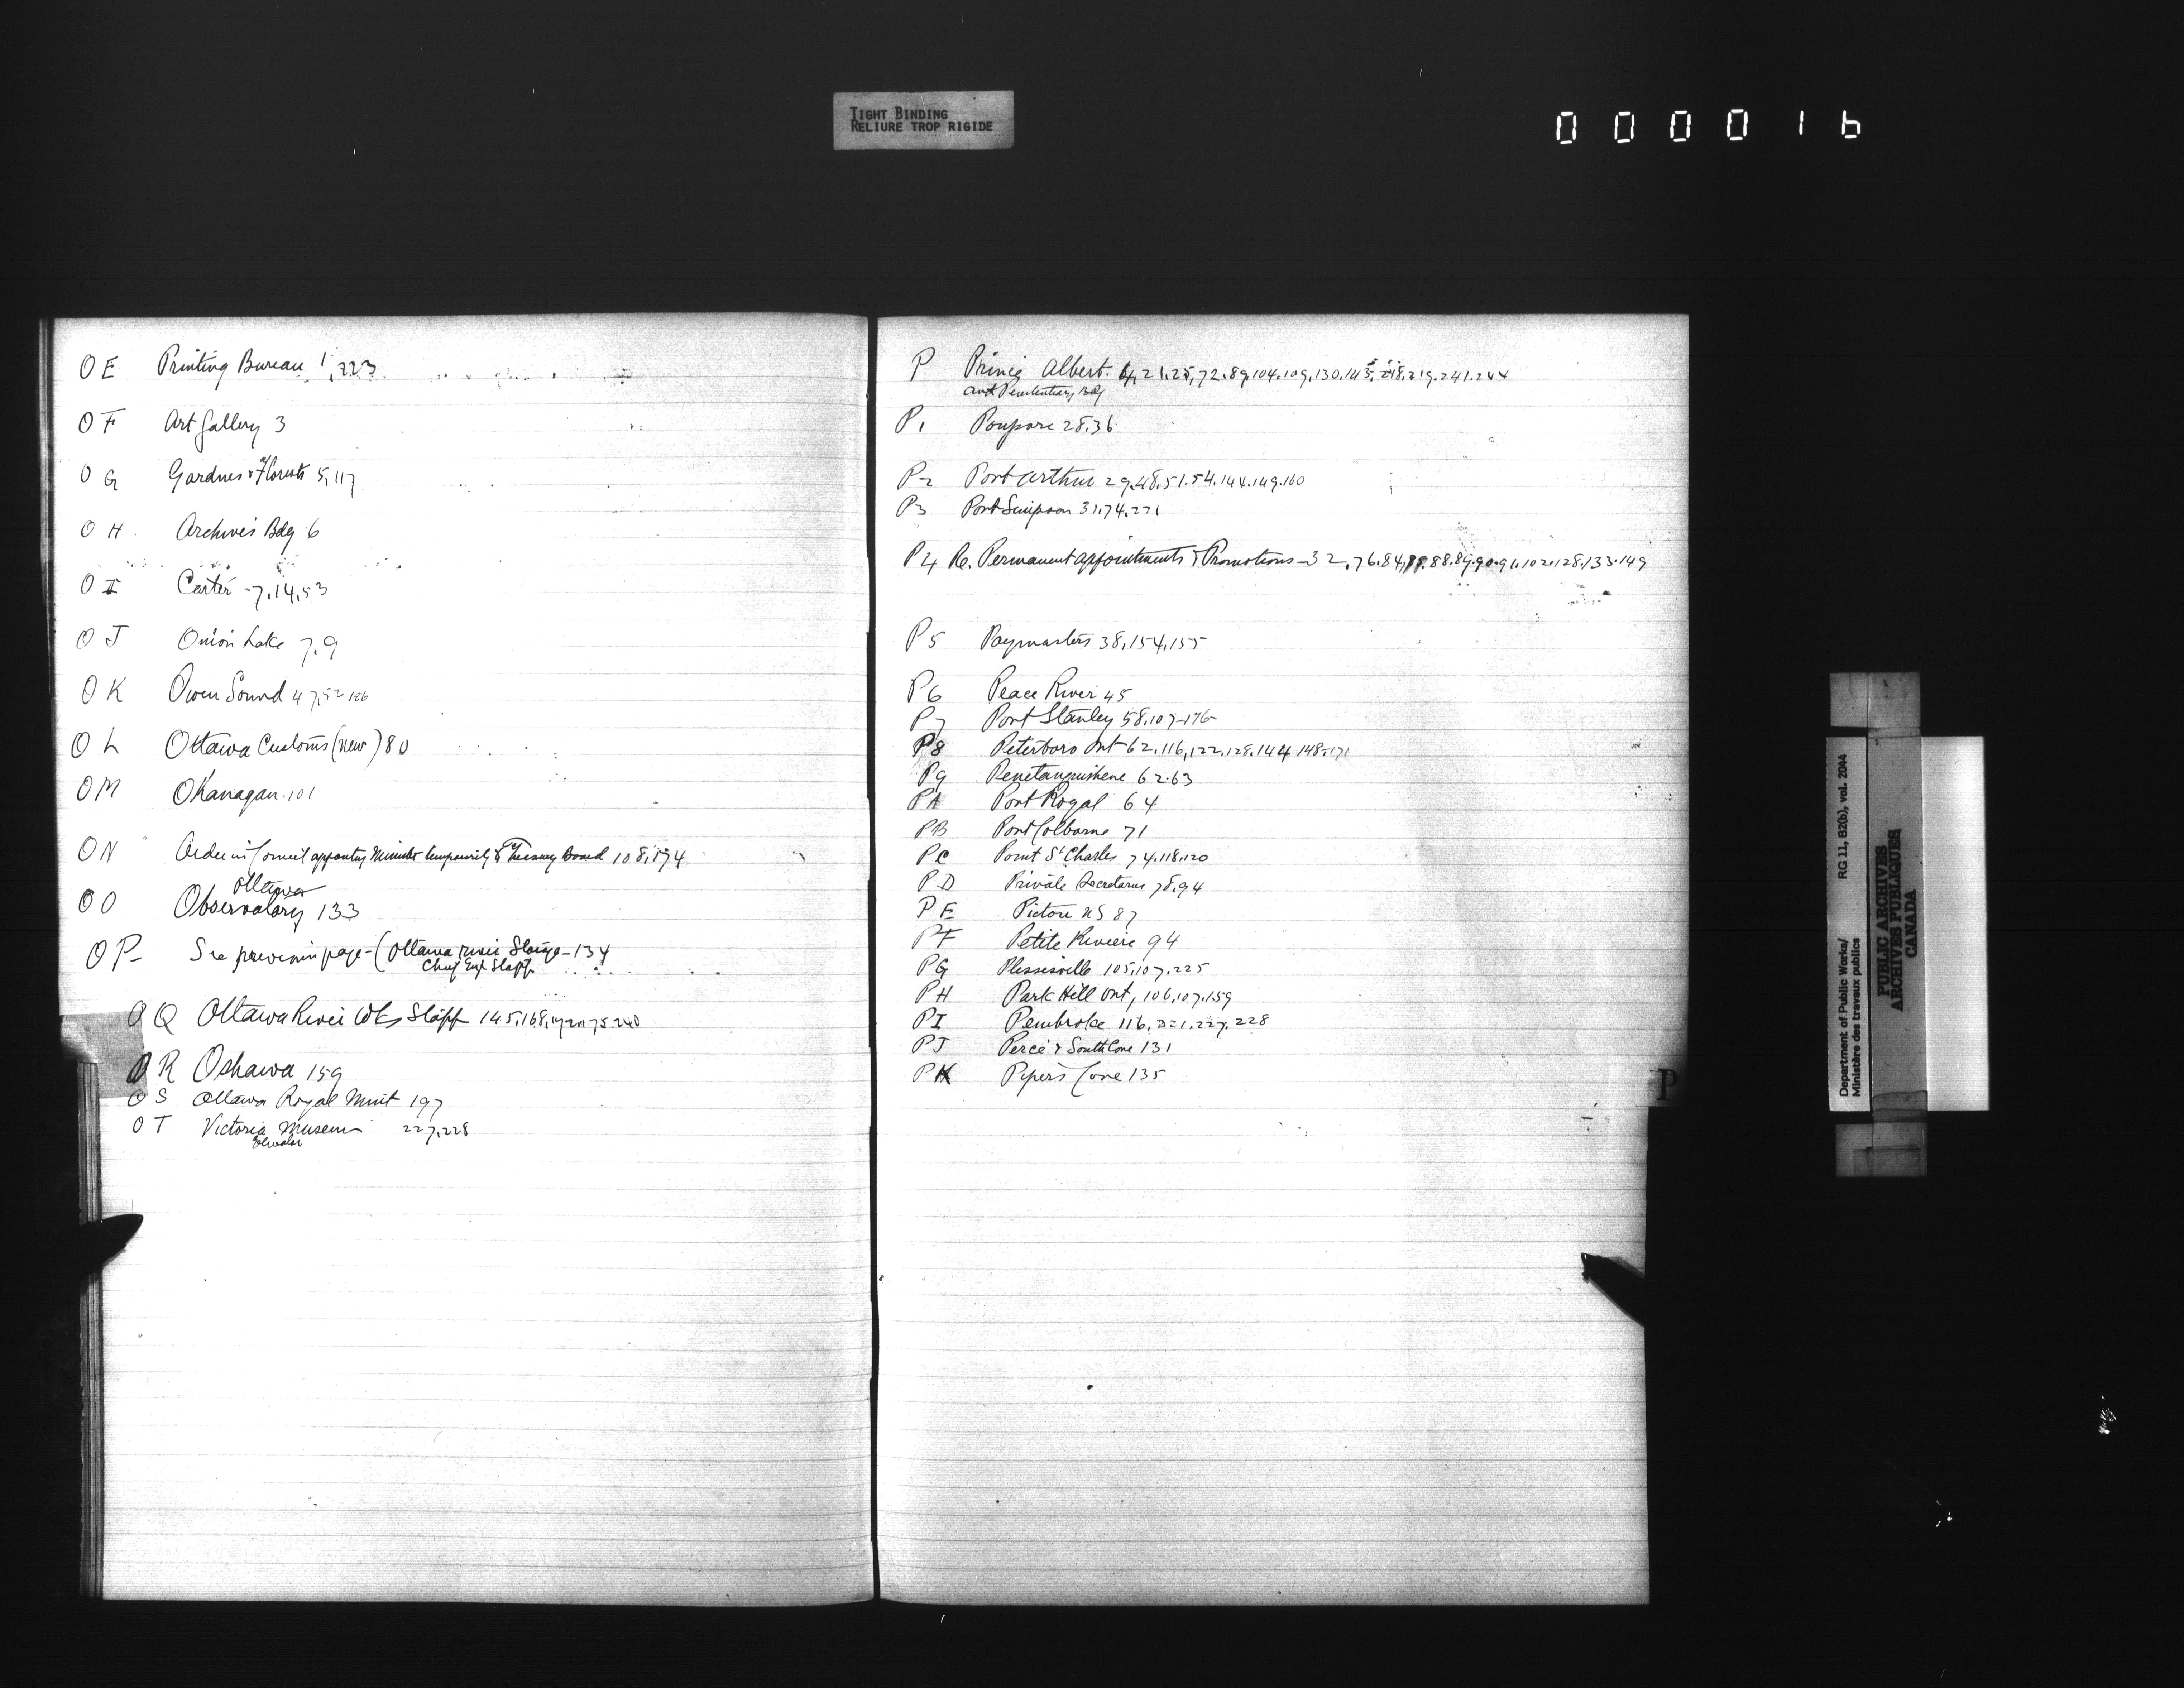 TIGHT BINDING
RELIURE TROP RIGIDE
000016
O E Printing Bureau 1, 223
O F Art Gallery 3
O G Gardners & Florists 5, 117
O H Archives Bdg 6
O I Carter - 7, 14, 53
O J Onion Lake 7, 9
O K Owen Sound 47, 52
O L Ottawa Customs (new) 80
O M OKanagan. 101
O N Order in Council appointing Minister temporarily to Treasury Board 108, 174
O O Ottawa
Observatory 133
O P- See previous page - (Ottawa River Storage - 134
Chief Eng Staff
O Q Ottawa River Wks Staff 145, 168
O R Oshawa 159
O S Ottawa Royal Mint 197
O T Victoria Museum 227, 228
P Prince Albert. 4, 21, 25, 72. 89, 104. 109, 130. 143, 218, 219. 241. 244
and Penitentiary Bdg
P1 Poupore 28, 36
P2 Port Arthur 29, 48, 51. 54. 144. 149. 160
P3 Port Simpson 31, 74. 221
P4 Re. Permanent appointments & Promotions - 32, 76. 84, 88. 89. 90. 91. 102. 128. 133. 149
P5 Paymasters 38, 154, 155
P6 Peace River 45
P7 Port Stanley 58, 107 - 176 -
P8 Peterboro Ont 62. 116, 122, 128, 144 148. 171
P9 Penetanguishene 62. 63
PA Port Royal 64
PB Port Colborne 71
PC Point St Charles 74. 118. 120
PD Private Secretaries 78, 94
PE Pictou NS 87
PF Petite Riviere 94
PG Plessisville 105, 107. 225
PH Park Hill Ont, 106, 107. 159
PI Pembroke 116, 221. 227. 228
PJ Percé & South Cove 131
PK Pipers Cove 135
P
Department of Public Works/ RG 11, B2(b), vol. 2044
Ministère des travaux publics
PUBLIC ARCHIVES
ARCHIVES PUBLIQUES
CANADA